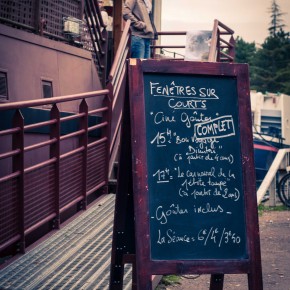 FENÊTRES SUR
COURTS
"Ciné Goûter
COMPLET
15H "Bon voyage
Dimitri"
(à partir de 4 ans)
17H - "Le carnaval de la
petite taupe"
(à partir de 2 ans)
- Goûter inclus -
La Séance = 6€/4€/3€50